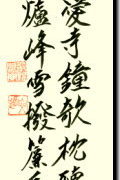 愛寺鐘欹枕聽
爐峰雪撥簾